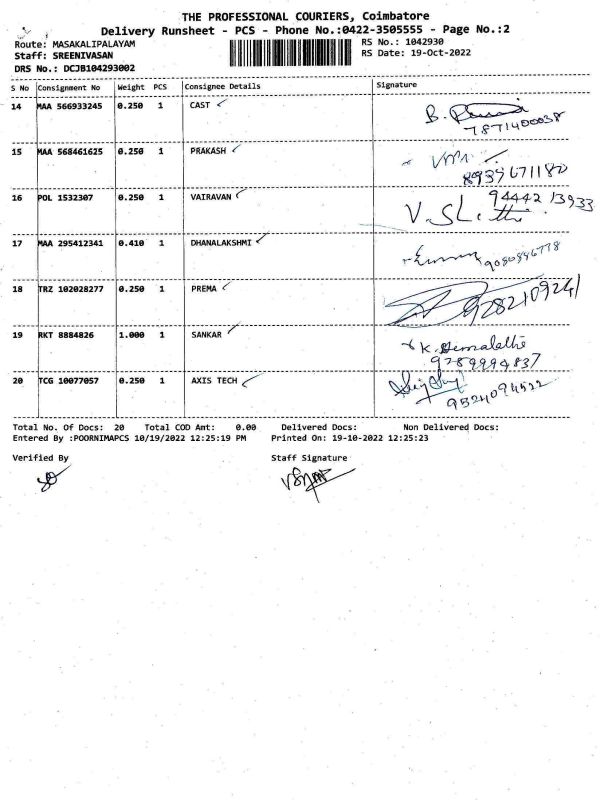 THE PROFESSIONAL COURIERS, Coimbatore
Delivery Runsheet - PCS - Phone No.:0422-3505555 - Page No.:2
Route: MASAKALIPALAYAM
RS No.: 1042930
Staff: SREENIVASAN
RS Date: 19-Oct-2022
DRS No.: DCJB104293002
S No Consignment No Weight PCS Consignee Details Signature
14 MAA 566933245 0.250 1 CAST B.
7871400038
15 MAA 568461625 0.250 1 PRAKASH
8939671180
16 POL 1532307 0.250 1 VAIRAVAN 9444213933
17 MAA 295412341 0.410 1 DHANALAKSHMI 9080896778
18 TRZ 102028277 0.250 1 PREMA 9282109241
19 RKT 8884826 1.000 1 SANKAR K. Hemalathe
9789994837
20 TCG 10077057 0.250 1 AXIS TECH
9524094522
Total No. Of Docs: 20 Total COD Amt: 0.00 Delivered Docs: Non Delivered Docs:
Entered By :POORNIMAPCS 10/19/2022 12:25:19 PM Printed On: 19-10-2022 12:25:23
Verified By Staff Signature